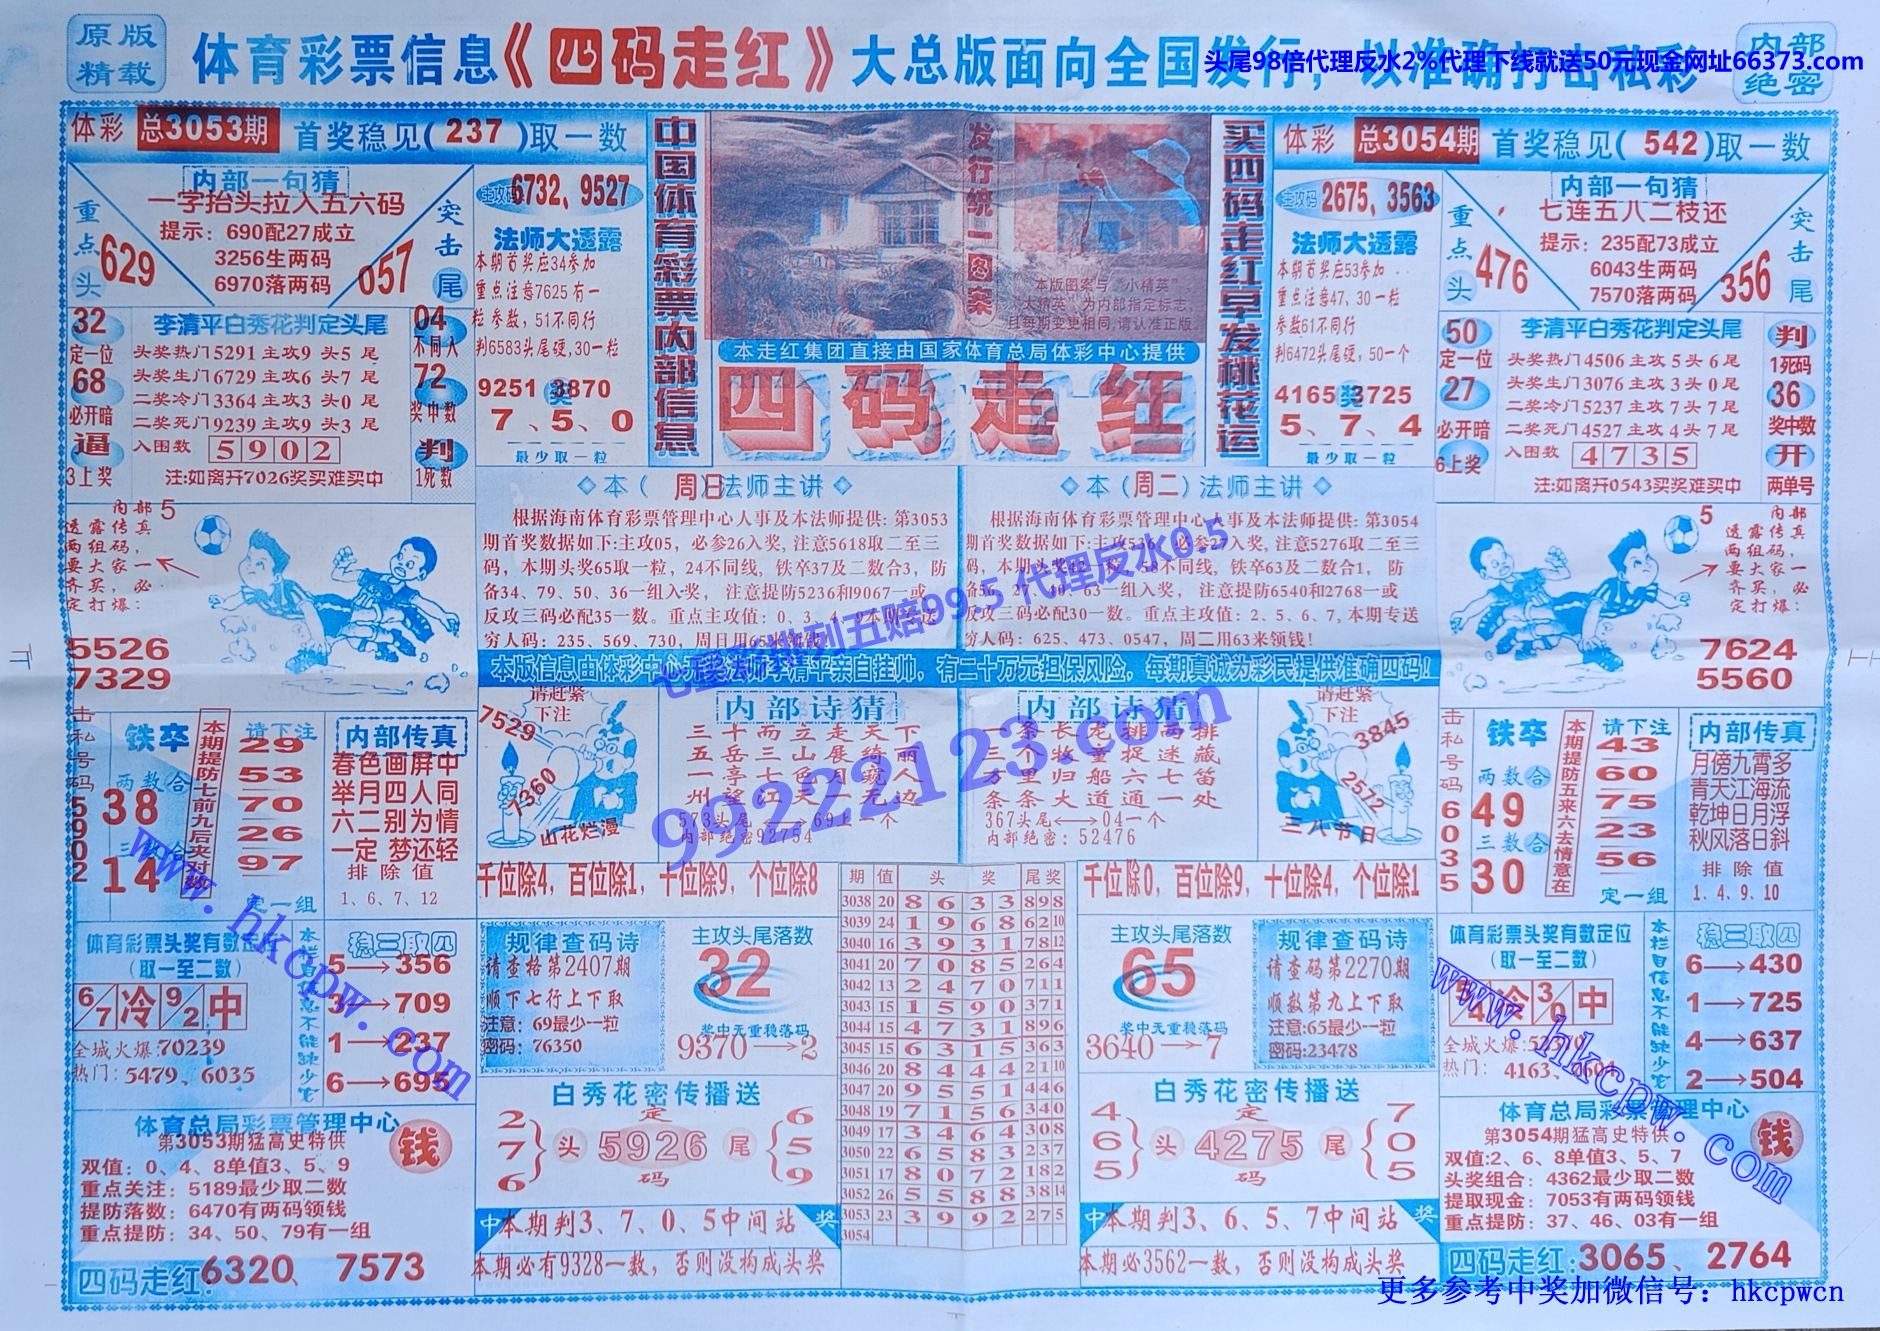 原版
精载
体育彩票信息《四码走红》大总版面向全国发行,以准确打击私彩
内部
绝密
头尾98倍代理反水2%代理下线就送50元现金网址66373.com
体彩 总3053期 首奖稳见(237)取一数
内部一句猜
一字抬头拉入五六码
提示:690配27成立
3256生两码
6970落两码
重点头
629
突击尾
057
主攻码 6732、9527
法师大透露
本期首奖应34参加
重点注意7625有一
粒参数,51不同行
判6583头尾硬,30一粒
9251奖3870
7、5、0
最少取一粒
32
定一位
68
必开暗
逼
3上奖
李清平白秀花判定头尾
头奖热门5291主攻9 头5 尾
头奖生门6729主攻6 头7 尾
二奖冷门3364主攻3 头0 尾
二奖死门9239主攻9 头3 尾
入围数 5902
注:如离开7026奖买难买中
04
不同入
72
奖中数
判
1死数
中国体育彩票内部信息
发行统一图案
本版图案与“小精英”
“大精英”为内部指定标志,
且每期变更相同,请认准正版
本走红集团直接由国家体育总局体彩中心提供
四码走红
买四码走红早发桃花运
体彩 总3054期 首奖稳见(542)取一数
主攻码 2675、3563
法师大透露
本期首奖应53参加
重点注意47,30一粒
参数61不同行
判6472头尾硬,50一个
4165奖3725
5、7、4
最少取一粒
内部一句猜
七连五八二枝还
提示:235配73成立
6043生两码
7570落两码
重点头
476
突击尾
356
50
定一位
27
必开暗
6上奖
李清平白秀花判定头尾
头奖热门4506主攻5头6尾
头奖生门3076主攻3头0尾
二奖冷门5237主攻7头7尾
二奖死门4527主攻4头7尾
入围数 4735
注:如离开0543买奖难买中
判
1死码
36
奖中数
开
两单号
内部
透露传真
两组码,
要大家一
齐买,必
定打爆:
5
5526
7329
本(周日)法师主讲
根据海南体育彩票管理中心人事及本法师提供:第3053
期首奖数据如下:主攻05,必参26入奖,注意5618取二至三
码,本期头奖65取一粒,24不同线,铁卒37及二数合3,防
备34、79、50、36一组入奖,注意提防5236和9067一或
反攻三码必配35一数。重点主攻值:0、3、4、9
穷人码:235、569、730,周日用65来领钱!
本(周二)法师主讲
根据海南体育彩票管理中心人事及本法师提供:第3054
必参27入奖,注意5276取二至三
铁卒63及二数合1,防
63一组入奖,注意提防6540和2768一或
反攻三码必配30一数。重点主攻值:2、5、6、7,本期专送
穷人码:625、473、0547,周二用63来领钱!
七星彩排列五赔99.5 代理反水0.5
本版信息由体彩中心头奖法师李清平亲自挂帅,有二十万元担保风险,每期真诚为彩民提供准确四码!
内部
透露传真
两组码,
要大家一
齐买,必
定打爆:
5
7624
5560
击私号码59032
铁卒
两数合
38
三数合
14
本期提防七前九后夹对数
请下注
29
53
70
26
97
定一组
内部传真
春色画屏中
举月四人同
六二别为情
一定 梦还轻
排除值
1、6、7、12
请赶紧
下注
7529
7360
山花烂漫
内部诗猜
三十而立走天下
五岳三山展绮丽
一亭七色月窥人
州望江天一无边
573头尾⟷69上一个
内部绝密92754
内部诗猜
一条长龙排高排
三个牧童捉迷藏
万里归船六七笛
条条大道通一处
367头尾⟷04一个
内部绝密:52476
请赶紧
下注
3845
2572
三八节日
99222123.com
击私号码60335
铁卒
两数合
49
三数合
30
本期提防五来六去情意在
请下注
43
60
75
23
56
定一组
内部传真
月傍九霄多
青天江海流
乾坤日月浮
秋风落日斜
排除值
1.4.9.10
千位除4,百位除1,十位除9,个位除8
期 值 头奖 尾奖
3038 20 8633 898
3039 24 1968 6210
3040 16 3931 7812
3041 20 7085 264
3042 13 2470 711
3043 15 1590 371
3044 15 4731 896
3045 15 6315 363
3046 20 8444 2110
3047 20 9551 446
3048 19 7156 340
3049 17 3464 308
3050 22 6583 237
3051 17 8072 182
3052 26 5588 3814
3053 23 3992 275
3054
千位除0,百位除9,十位除4,个位除1
体育彩票头奖有数定位
(取一至二数)
6/7 冷 9/2 中
全城火爆:70239
热门:5479、6035
稳三取四
5→356
3→709
1→237
6→695
规律查码诗
请查格第2407期
顺下七行上下取
注意:69最少一粒
密码:76350
主攻头尾落数
32
奖中无重稳落码
9370→2
主攻头尾落数
65
奖中无重稳落码
3640→7
规律查码诗
请查码第2270期
顺数第九上下取
注意:65最少一粒
密码:23478
体育彩票头奖有数定位
(取一至二数)
冷 3/0 中
全城火爆:
热门:4163、
本栏目信息不能缺少它
稳三取四
6→430
1→725
4→637
2→504
www.hkcpw.com
www.hkcpw.com
体育总局彩票管理中心
第3053期猛高史特供
钱
双值:0、4、8单值3、5、9
重点关注:5189最少取二数
提防落数:6470有两码领钱
重点提防:34、50、79有一组
四码走红:6320、7573
白秀花密传播送
276 头 定 5926 码 尾 659
中 本期判3、7、0、5中间站 奖
本期必有9328一数,否则没构成头奖
白秀花密传播送
465 头 定 4275 码 尾 705
中 本期判3、6、5、7中间站 奖
本期必3562一数,否则没构成头奖
体育总局彩票管理中心
第3054期猛高史特供
钱
双值:2、6、8单值3、5、7
头奖组合:4362最少取二数
提取现金:7053有两码领钱
重点提防:37、46、03有一组
四码走红:3065、2764
更多参考中奖加微信号:hkcpwcn